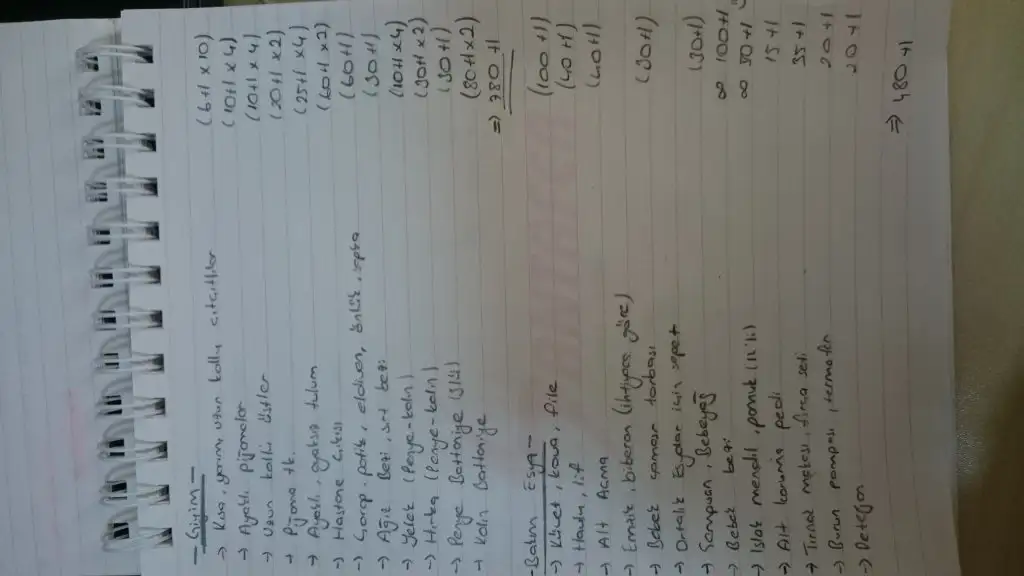 - Giyim -
→ Kısa, yarım, uzun kollu çıtçıtlılar (6tl x 10)
→ Ayaklı pijamalar (10tl x 4)
→ Uzun kollu üstler (10tl x 4)
→ Pijama tk. (20tl x 2)
→ Ayaklı, ayaksız tulum (25tl x 4)
→ Hastane Çıkışı (60tl x 2)
→ Çorap, patik, eldiven, önlük, şapka (60tl)
→ Ağız Bezi, sırt bezi (30tl)
→ Yelek (Penye-kalın) (10tl x 4)
→ Hırka (Penye-kalın) (30tl x 2)
→ Penye Battaniye (30tl)
→ Kalın Battaniye (80tl x 2)
⇒ 780 tl
- Bakım Eşya -
→ Küvet, kova, file (100tl)
→ Havlu, lif (40tl)
→ Alt Açma (40tl)
→ Emzik, biberon (ihtiyaca göre)
→ Bebek çamaşır torbası (30tl)
→ Ortalık Eşyalar için sepet
→ Şampuan, Bebeyağ (30tl)
→ Bebek bezi ∞ 100tl
→ Islak mendil, pamuk ∞ 50tl
→ Alt koruma pedi 15tl
→ Tırnak makası, fırça seti 35tl
→ Burun pompası, termometre 20tl
→ Deterjan 20tl
⇒ 480 tl